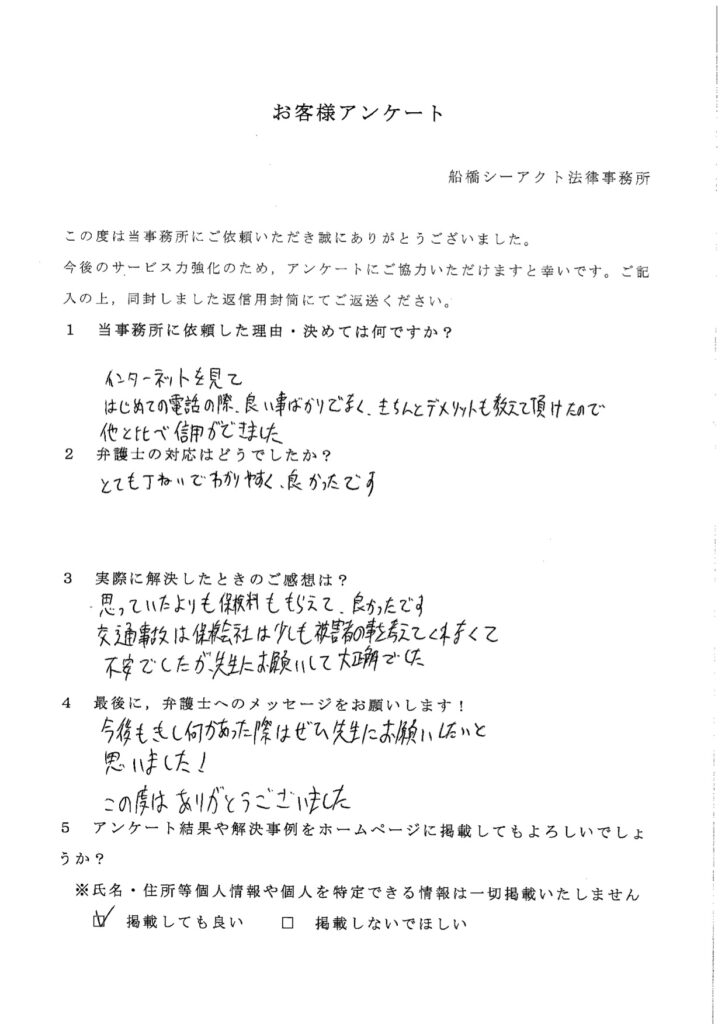 お客様アンケート
船橋シーアクト法律事務所
この度は当事務所にご依頼いただき誠にありがとうございました。
今後のサービス力強化のため，アンケートにご協力いただけますと幸いです。ご記
入の上，同封しました返信用封筒にてご返送ください。
1　当事務所に依頼した理由・決めては何ですか？
インターネットを見て
はじめての電話の際、良い事ばかりでなく、きちんとデメリットも教えて頂けたので
他と比べ信用ができました
2　弁護士の対応はどうでしたか？
とても丁ねいでわかりやすく、良かったです
3　実際に解決したときのご感想は？
思っていたよりも保険料ももらえて、良かったです
交通事故は保険会社は少しも被害者の事を考えてくれなくて
不安でしたが、先生にお願いして大正解でした
4　最後に，弁護士へのメッセージをお願いします！
今後ももし何かあった際はぜひ先生にお願いしたいと
思いました！
この度はありがとうございました
5　アンケート結果や解決事例をホームページに掲載してもよろしいでしょ
うか？
※氏名・住所等個人情報や個人を特定できる情報は一切掲載いたしません
☑　掲載しても良い　□　掲載しないでほしい